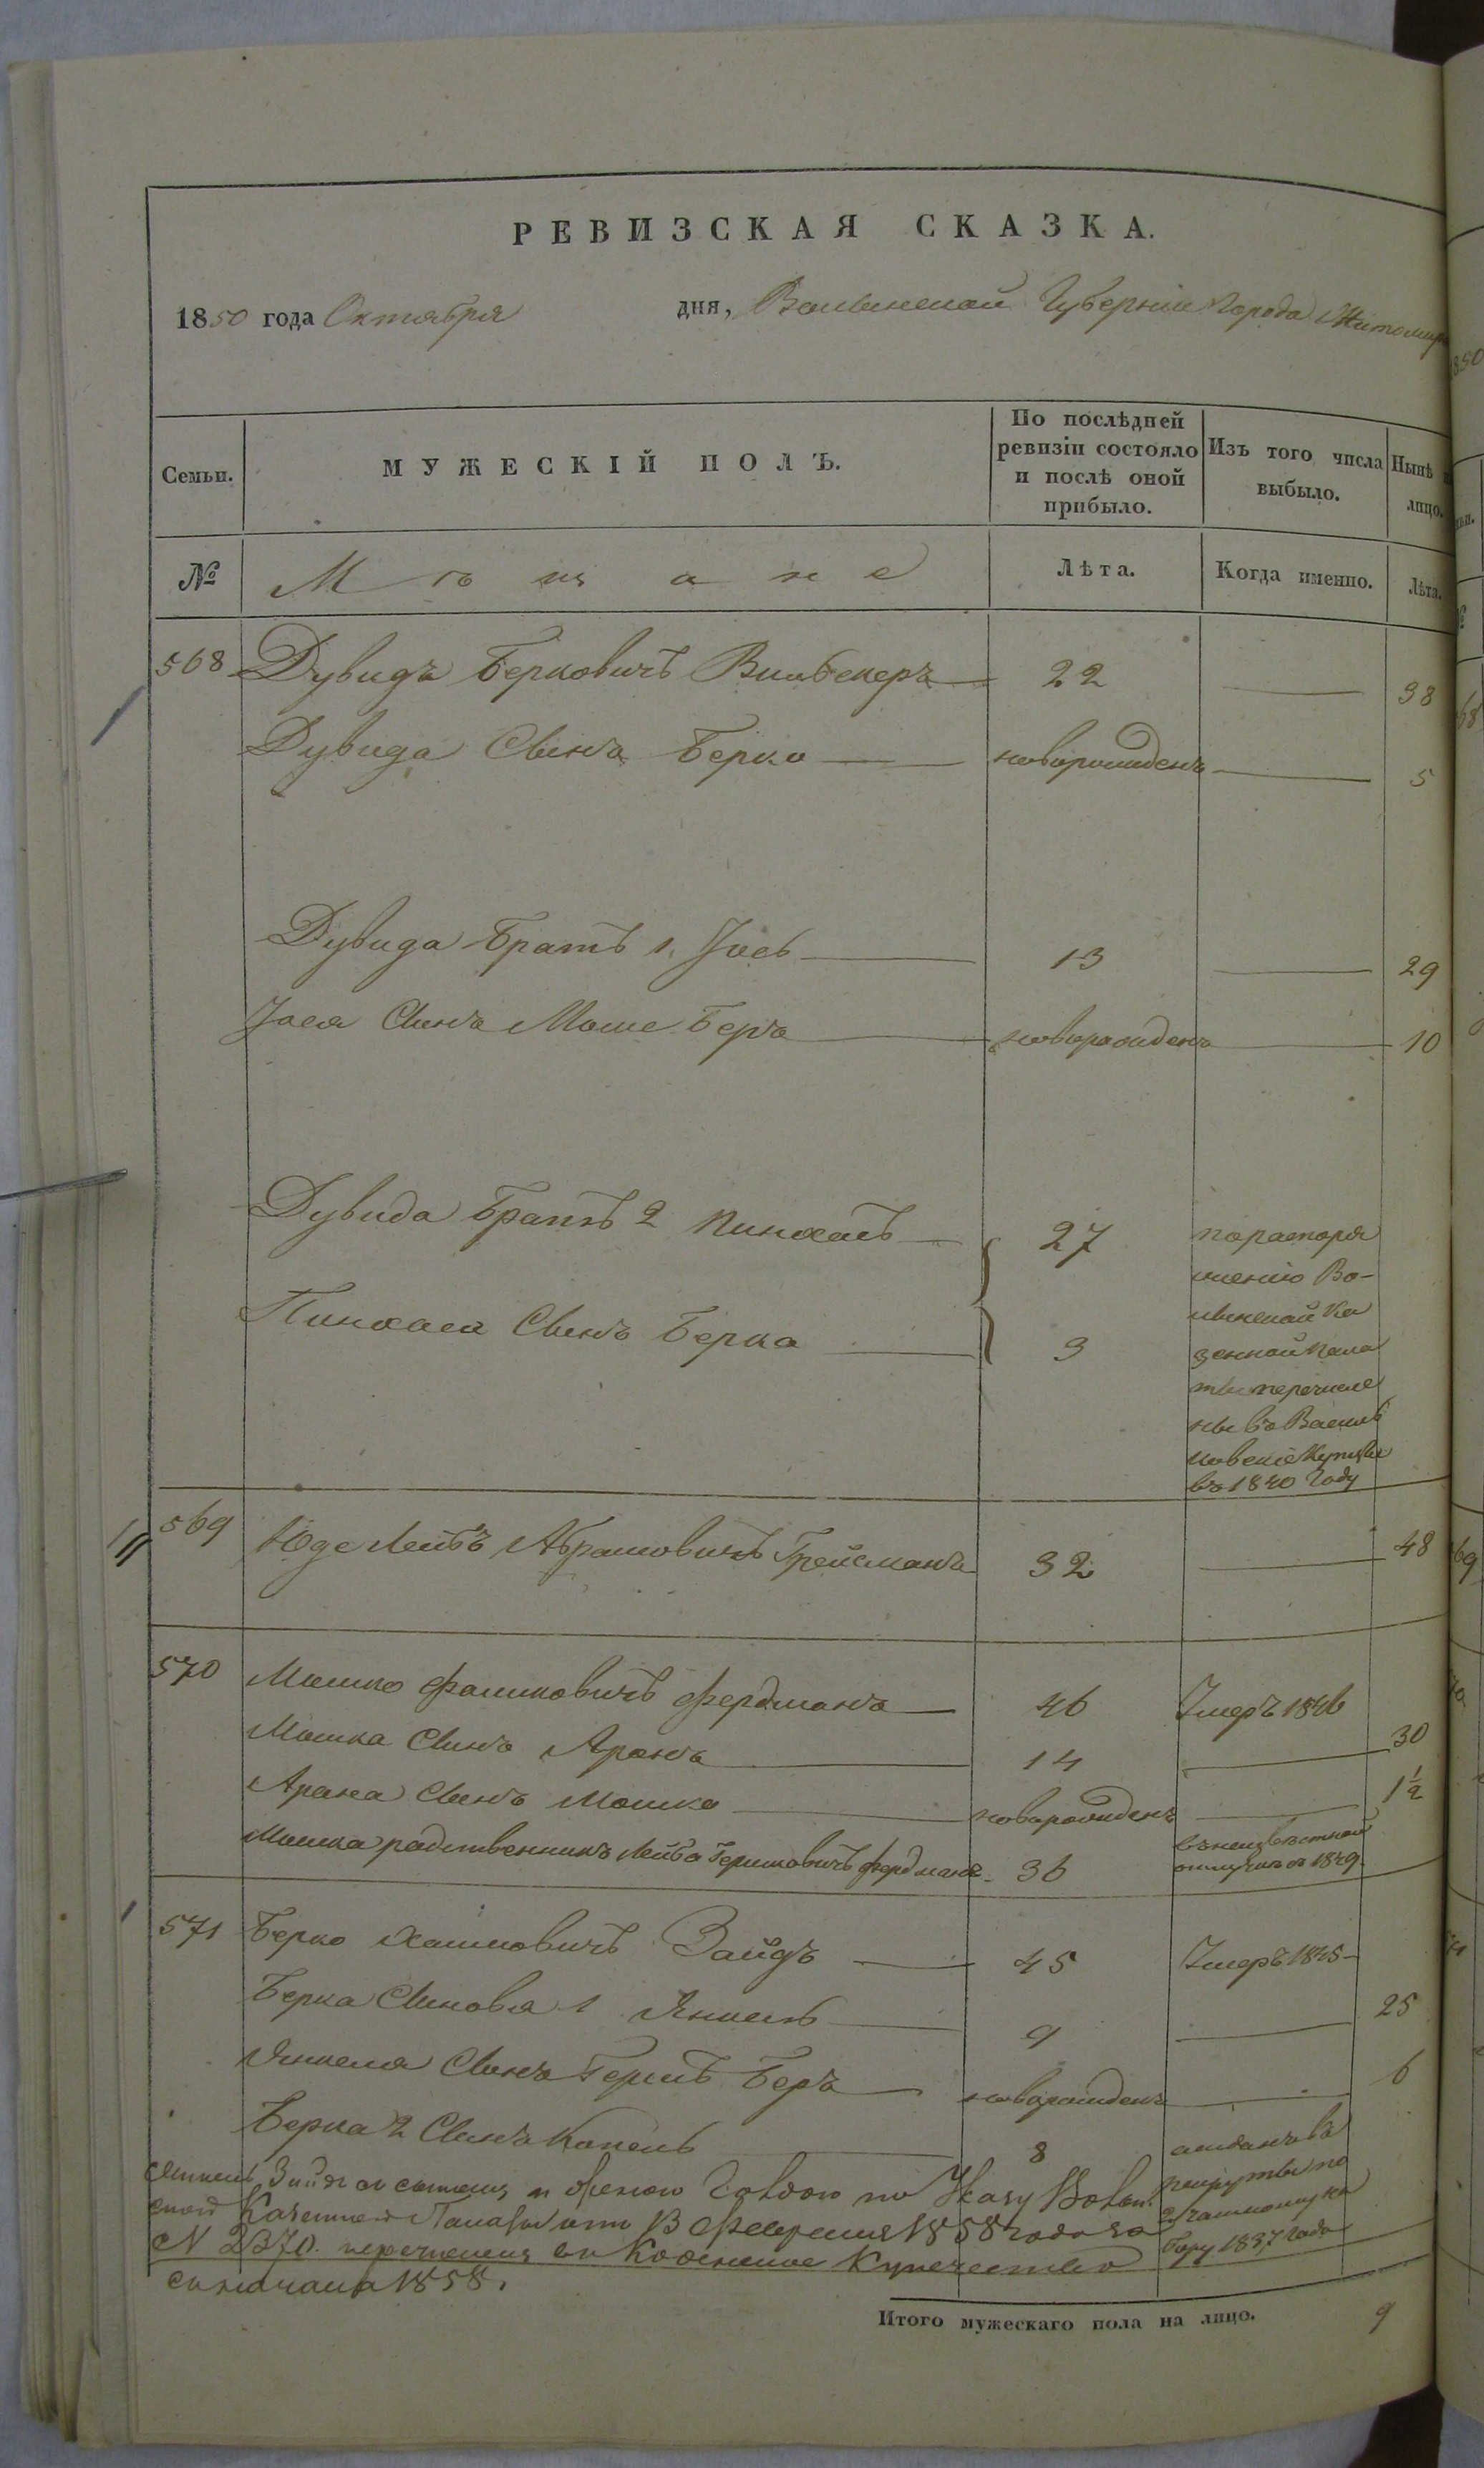 РЕВИЗСКАЯ СКАЗКА.
1850 года Октября дня, Волынской Губернiи Города Житомир
Семьи. МУЖЕСКIЙ ПОЛЪ. По послѣдней ревизiи состояло и послѣ оной прибыло. Изъ того числа выбыло. Нынѣ лицо.
№ Мѣщане Лѣта. Когда именно. Лѣта.
568 Дувидъ Берковичъ 22 38
Дувида Сынъ Берко новорожденъ 5
Дувида Братъ 1. Iось 13 29
Iося Сынъ Моше Беръ новорожденъ 10
Дувида Братъ 2 Пинхасъ 27
Пинхаса Сынъ Берка 3
по распоря
женiю Во-
лынской Ка
зенной Пала
ты перечисле
ны въ
Купцы
въ 1840 Году
569 Юде Лейбъ Абрамовичъ Грейсманъ 32 48
570 Мошко Фердманъ 46 Умеръ 1846
Мошка Сынъ Аронъ 14 30
Арона Сынъ Мошко новорожденъ 1½
Мошка родственникъ Лейба Гершковичъ Фердманъ 36 въ неизвѣстной
отлучкѣ съ 1849.
571 Берко Хаимовичъ Зайдъ 45 Умеръ 1845
Берка Сыновья 1 Янкель 9 25
Янкеля Сынъ Гершъ Беръ новорожденъ 6
Берка 2 Сынъ Копель 8 отданъ въ
рекруты по
бору 1837 Года
Янкель Зайдъ съ сыномъ и женою по Указу Волын
ской Казенной Палаты отъ 13 Февраля 1858 года за
N 2370. перечисленъ въ Купечество
съ начала 1858.
Итого мужескаго пола на лицо. 9